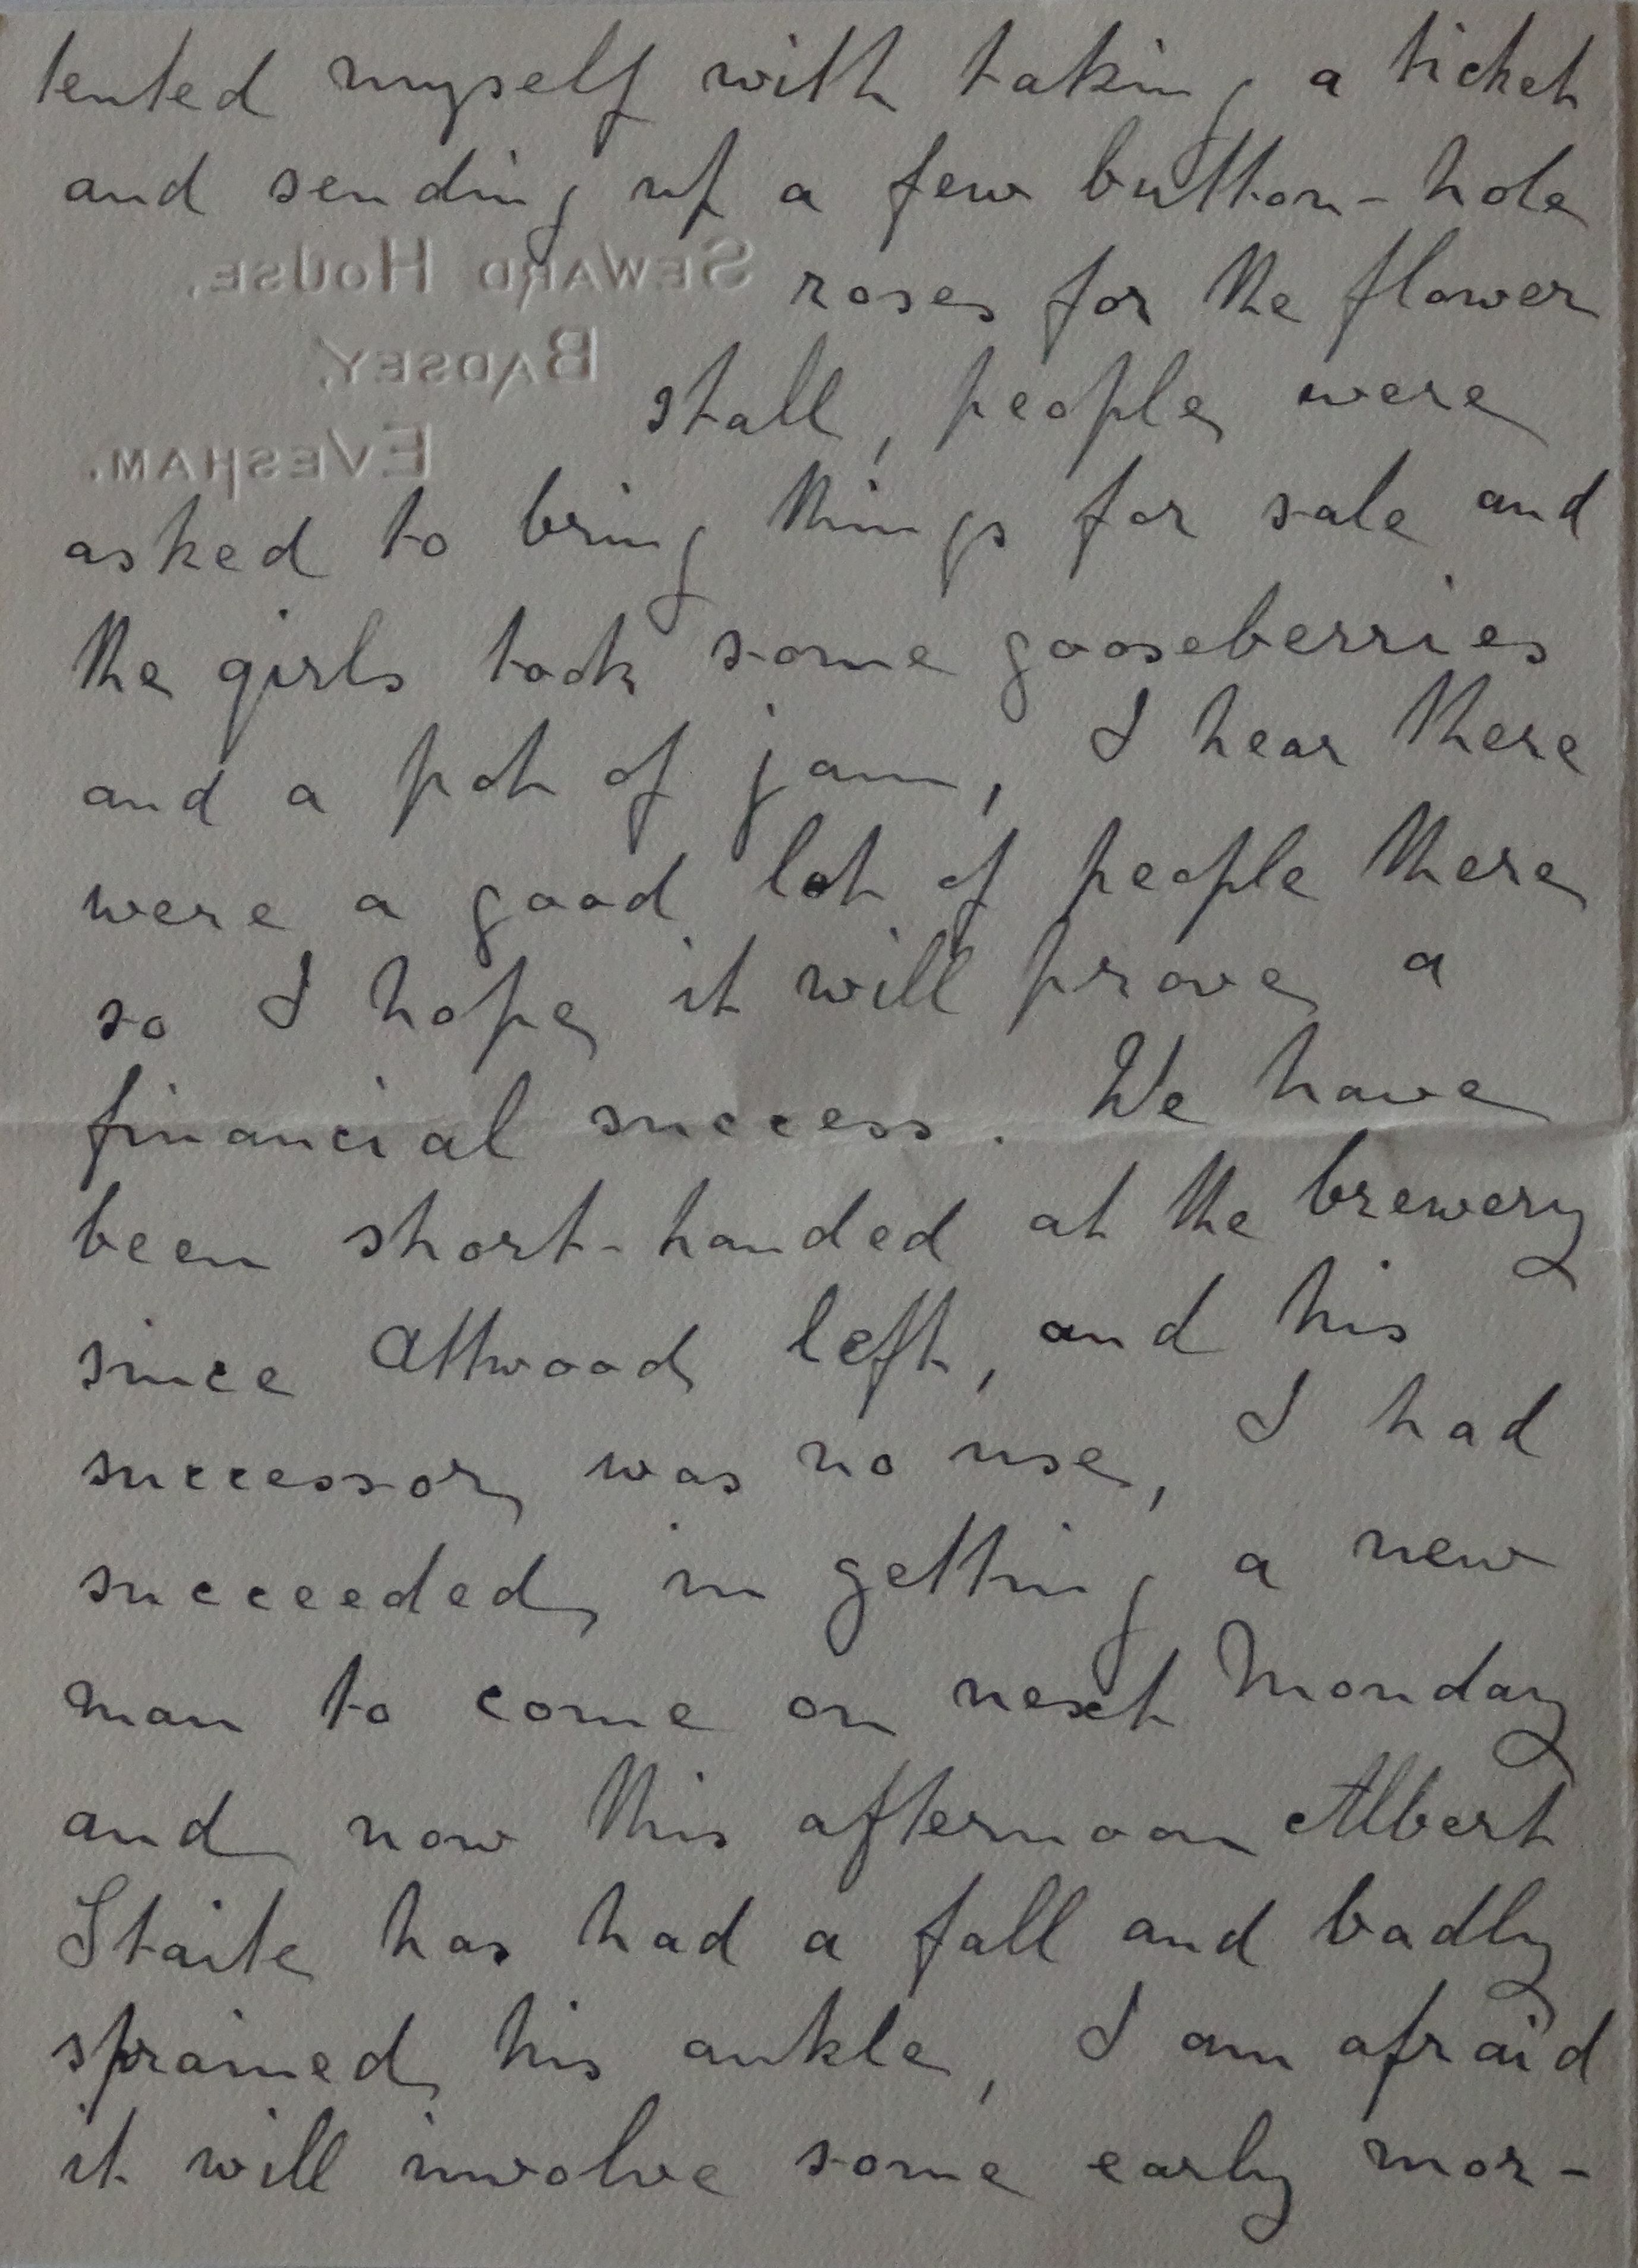 tented myself with taking a ticket
and sending up a few button-hole
SEWARD HOUSE,
roses for the flower
BADSEY,
stall, people were
EVESHAM.
asked to bring things for sale and
the girls took some gooseberries
and a pot of jam, I hear there
were a good lot of people there
so I hope it will prove a
financial success. We have
been short-handed at the brewery
since Attwood left, and his
successor was no use, I had
succeeded in getting a new
man to come on next Monday
and now this afternoon Albert
Staite has had a fall and badly
sprained his ankle, I am afraid
it will involve some early mor-